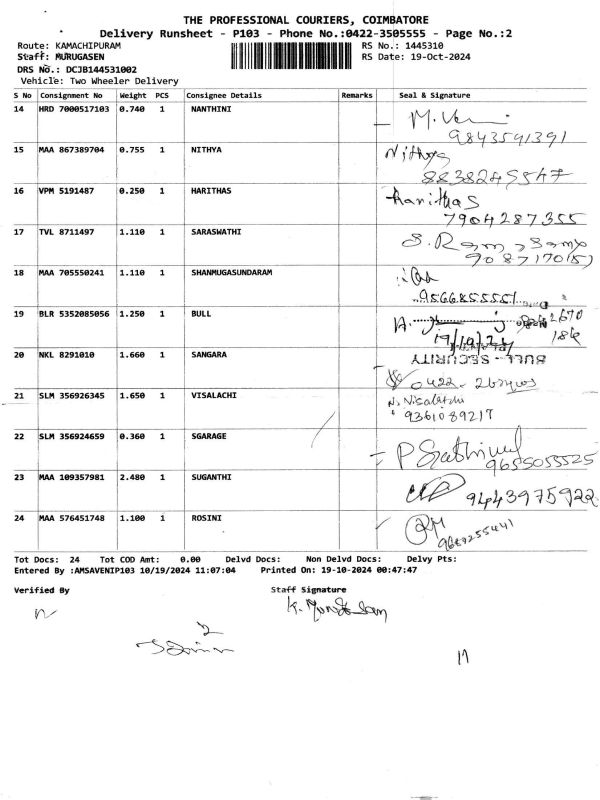 THE PROFESSIONAL COURIERS, COIMBATORE
Delivery Runsheet - P103 - Phone No.:0422-3505555 - Page No.:2
Route: KAMACHIPURAM RS No.: 1445310
Staff: MURUGASEN RS Date: 19-Oct-2024
DRS No.: DCJB144531002
Vehicle: Two Wheeler Delivery
S No Consignment No Weight PCS Consignee Details Remarks Seal & Signature
14 HRD 7000517103 0.740 1 NANTHINI
9843591391
15 MAA 867389704 0.755 1 NITHYA Nithya
8838245547
16 VPM 5191487 0.250 1 HARITHAS Harithas
7904287355
17 TVL 8711497 1.110 1 SARASWATHI
18 MAA 705550241 1.110 1 SHANMUGASUNDARAM
9566855551
19 BLR 5352085056 1.250 1 BULL
19/10/24
BULL - SECURITY
20 NKL 8291010 1.660 1 SANGARA
0422-
21 SLM 356926345 1.650 1 VISALACHI N. Visalatchi
9361089217
22 SLM 356924659 0.360 1 SGARAGE
9655055525
23 MAA 109357981 2.480 1 SUGANTHI
9443975922
24 MAA 576451748 1.100 1 ROSINI
Tot Docs: 24 Tot COD Amt: 0.00 Delvd Docs: Non Delvd Docs: Delvy Pts:
Entered By :AMSAVENIP103 10/19/2024 11:07:04 Printed On: 19-10-2024 00:47:47
Verified By Staff Signature